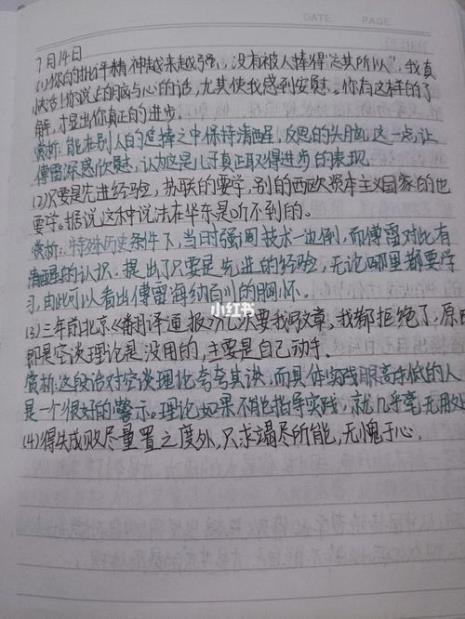 DATE PAGE
7月14日
(1)你的批评精神越来越强,没有被人捧得“忘其所以”,我真
快活!你说的脑与心的话,尤其使我感到安慰。你有这样的了
解,才显出你真正的进步。
赏析:能在别人的追捧之中保持清醒,反思的头脑,这一点,让
傅雷深感欣慰,认为这是儿子真正取得进步的表现。
(2)只要是先进经验,苏联的要学,别的西欧资本主义国家的也
要学。据说这种说法在华东是听不到的。
赏析:特殊历史条件下,当时强调技术一边倒,而傅雷对此有
清醒的认识。提出了只要是先进的经验,无论哪里都要学
习,由此可以看出傅雷海纳百川的胸怀。
小红书
(3)三年前北京《翻译通报》几次要我写文章,我都拒绝了,原因
即是空谈理论是没用的,主要是自己动手。
赏析:这段话对空谈理论夸夸其谈,而具体实践眼高手低的人
是一个很好的警示。理论如果不能指导实践,就几乎毫无用处
(4)得失成败尽量置之度外,只求竭尽所能,无愧于心。